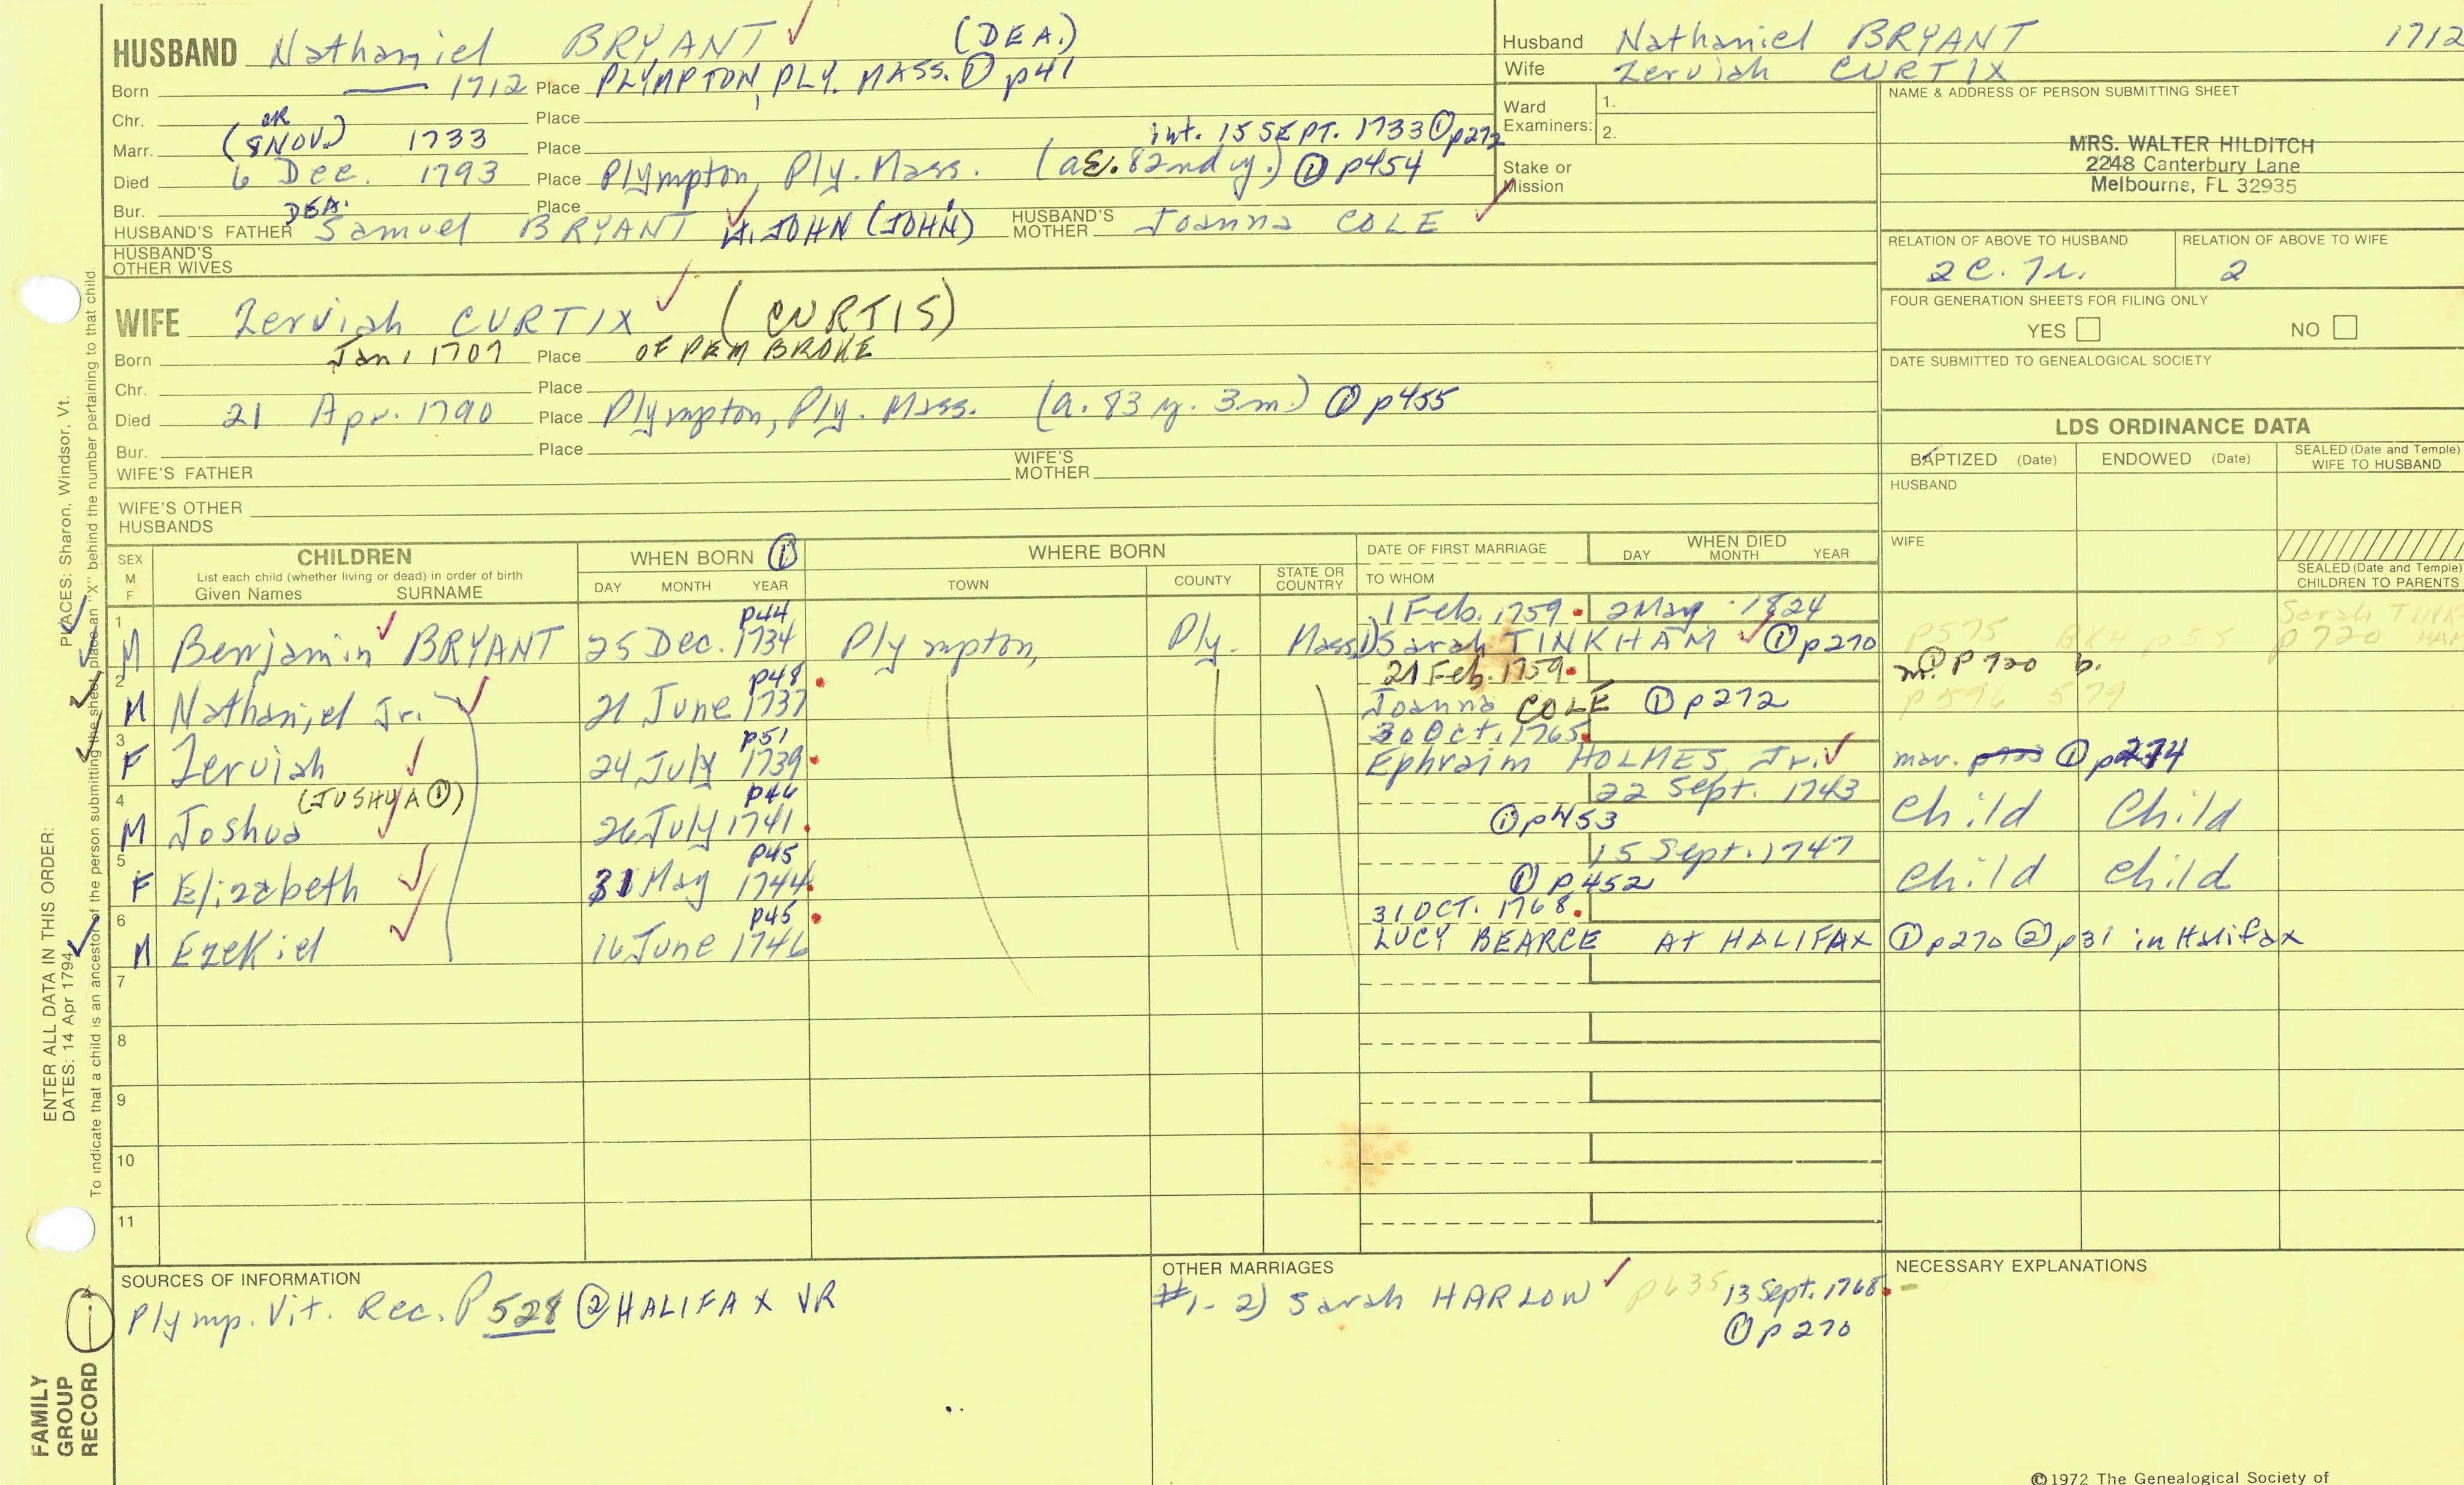 HUSBAND Nathaniel BRYANT (DEA.)
Born 1712 Place PLYMPTON, PLY. MASS. ① p41
Chr. Place
OR
Marr. (8 NOV.) 1733 Place int. 15 SEPT. 1733 ① p272
Died 6 Dec. 1793 Place Plympton, Ply. Mass. (aE. 82nd y.) ① p454
Bur. Place
DEA.
HUSBAND'S FATHER Samuel BRYANT JOHN (JOHN) HUSBAND'S MOTHER Joanna COLE
HUSBAND'S OTHER WIVES
WIFE Zerviah CURTIX (CURTIS)
Born Jan, 1707 Place OF PEMBROKE
Chr. Place
Died 21 Apr. 1790 Place Plympton, Ply. Mass. (a. 83 y. 3m.) ① p455
Bur. Place
WIFE'S FATHER WIFE'S MOTHER
WIFE'S OTHER HUSBANDS
Husband Nathaniel BRYANT 1712
Wife Zerviah CURTIX
Ward Examiners: 1. 2.
Stake or Mission
NAME & ADDRESS OF PERSON SUBMITTING SHEET
MRS. WALTER HILDITCH
2248 Canterbury Lane
Melbourne, FL 32935
RELATION OF ABOVE TO HUSBAND RELATION OF ABOVE TO WIFE
2C. 7r. 2
FOUR GENERATION SHEETS FOR FILING ONLY
YES NO
DATE SUBMITTED TO GENEALOGICAL SOCIETY
LDS ORDINANCE DATA
BAPTIZED (Date) ENDOWED (Date) SEALED (Date and Temple) WIFE TO HUSBAND
HUSBAND
WIFE
SEALED (Date and Temple) CHILDREN TO PARENTS
SEX M F CHILDREN WHEN BORN ① WHERE BORN DATE OF FIRST MARRIAGE WHEN DIED
List each child (whether living or dead) in order of birth
Given Names SURNAME DAY MONTH YEAR TOWN COUNTY STATE OR COUNTRY TO WHOM DAY MONTH YEAR
p44 1 Feb. 1759 2 May 1824 Sarah TINK
1 M Benjamin BRYANT 25 Dec. 1734 Plympton, Ply. Mass. 1) Sarah TINKHAM ① p270 p575 BX4 p55 p720 HAM
p48 21 Feb. 1759 m. ① p720 b.
2 M Nathaniel Jr. 21 June 1737 Joanna COLE ① p272 p596 579
p51 30 Oct. 1765
3 F Zerviah 24 July 1739 Ephraim HOLMES, Jr. mar. ① p274
(JOSHUA ①) p46 22 Sept. 1743
4 M Joshua 26 July 1741 ① p453 Child Child
p45 15 Sept. 1747
5 F Elizabeth 31 May 1744 ① p452 Child Child
p45 31 OCT. 1768
6 M Ezekiel 16 June 1746 LUCY BEARCE AT HALIFAX ① p270 ② p31 in Halifax
7
8
9
10
11
SOURCES OF INFORMATION
Plymp. Vit. Rec. P 528 ② HALIFAX VR
OTHER MARRIAGES
#1-2) Sarah HARLOW p635 13 Sept. 1768
① p270
NECESSARY EXPLANATIONS
©1972 The Genealogical Society of
ENTER ALL DATA IN THIS ORDER:
DATES: 14 Apr 1794 PLACES: Sharon, Windsor, Vt.
To indicate that a child is an ancestor of the person submitting the sheet, place an "X" behind the number pertaining to that child.
FAMILY
GROUP
RECORD